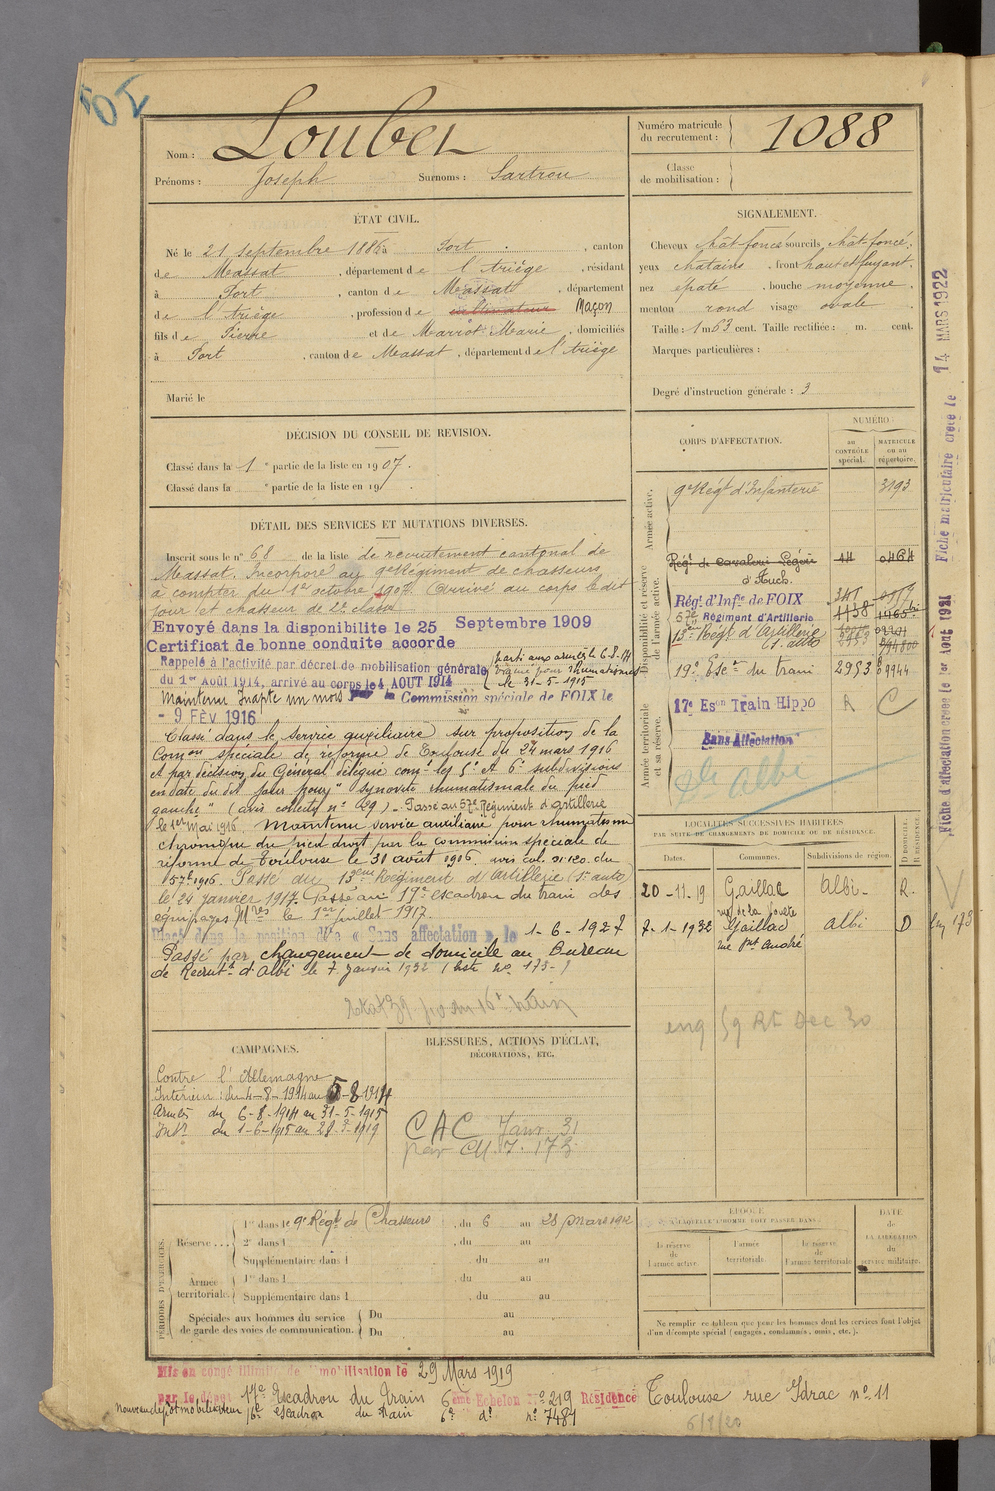 Nom : Loubet
Prénoms : Joseph Surnoms : Sartrou
Numéro matricule du recrutement : 1088
Classe de mobilisation :
ÉTAT CIVIL.
Né le 21 septembre 1886 à Port , canton
de Massat , département de l'Ariège , résidant
à Port , canton de Massat , département
de l'Ariège , profession de cultivateur Maçon
fils de Pierre et de Marrot Marie , domiciliés
à Port , canton de Massat , département de l'Ariège
Marié le
SIGNALEMENT.
Cheveux chât-foncé sourcils chât-foncé ;
yeux chatains , front haut et fuyant.
nez épaté , bouche moyenne
menton rond visage ovale
Taille : 1 m 63 cent. Taille rectifiée : m. cent.
Marques particulières :
Degré d'instruction générale : 3
DÉCISION DU CONSEIL DE REVISION.
Classé dans la 1 e partie de la liste en 1907.
Classé dans la e partie de la liste en 19 .
DÉTAIL DES SERVICES ET MUTATIONS DIVERSES.
Inscrit sous le n° 68 de la liste de recrutement cantonal de
Massat. Incorporé au 9e Régiment de chasseurs
à compter du 1er octobre 1907. Arrivé au corps le dit
jour et chasseur de 2e classe
Envoyé dans la disponibilite le 25 Septembre 1909
Certificat de bonne conduite accorde
Rappelé à l'activité par décret de mobilisation générale
du 1er Août 1914, arrivé au corps le 4 AOUT 1914
parti aux armées le 6-8-14
évacué pour rhumatismes
le 31-5-1915
Maintenu Inapte un mois par la Commission spéciale de FOIX le
- 9 FÉV 1916
Classé dans le service auxiliaire sur proposition de la
Comon spéciale de réforme de Toulouse du 24 mars 1916
et par décision du Général délégué comt les 5e et 6e subdivisions
en date du dit jour pour " synovite rhumatismale du pied
gauche" (avis collectif n° 49). Passé au 57e Régiment d'artillerie
le 1er Mai 1916. Maintenu service auxiliaire pour rhumatisme
chronique du pied droit par la commission spéciale de
réforme de Toulouse le 31 août 1916. avis col. n° 120 du
1-9-1916. Passé au 13eme Régiment d'Artillerie (S. auto)
le 24 janvier 1917. Passé au 19e escadron du train des
équipages Mres le 1er juillet 1917.
Placé dans la position dite « Sans affectation » le 1-6-1927
Passé par changement de domicile au Bureau
de Recrutt d'Albi le 7 janvier 1932 (liste n° 173-)
CORPS D'AFFECTATION.
NUMÉRO
au CONTRÔLE spécial.
MATRICULE ou au répertoire.
Armée active.
9e Régt d'Infanterie 3193
Disponibilité et réserve de l'armée active.
Régt de Cavalerie Légère 14 0464
d'Auch.
Régt d'Infie de FOIX
Régiment d'Artillerie
13eme Régt d'Artillerie
S. auto
19e Escn du train 2953
Armée territoriale et sa réserve.
17e Eson Train Hippo R C
Sans Affectation
de Albi
LOCALITÉS SUCCESSIVES HABITÉES
PAR SUITE DE CHANGEMENTS DE DOMICILE OU DE RÉSIDENCE.
Dates. Communes. Subdivisions de région. D DOMICILE. R RÉSIDENCE.
20-11-19 Gaillac Albi- R.
7-1-1932 Gaillac Albi D
rue St André
eng 59 RI Dec 30
CAMPAGNES.
Contre l'Allemagne
Intérieur : du 4-8-1914 au 5-8-1914
Armées du 6-8-1914 au 31-5-1915
Intr du 1-6-1915 au 28-3-1919
BLESSURES, ACTIONS D'ÉCLAT,
DÉCORATIONS, ETC.
CAC Janv. 31
par M.I. 173
PÉRIODES D'EXERCICES.
Réserve...
1re dans le 9e Régt de Chasseurs , du 6 au 28 mars 1912
2e dans l , du au
Supplémentaire dans l du au
Armée territoriale.
1re dans l , du au
Supplémentaire dans l , du au
Spéciales aux hommes du service
de garde des voies de communication.
Du au
Du au
ÉPOQUE
À LAQUELLE L'HOMME DOIT PASSER DANS :
la réserve de l'armée active.
l'armée territoriale.
la réserve de l'armée territoriale
DATE de LA LIBÉRATION du service militaire.
Ne remplir ce tableau que pour les hommes dont les services font l'objet
d'un décompte spécial (engagés, condamnés, omis, etc.).
Mis en congé illimité de démobilisation le 29 Mars 1919
par le dépot 17e Escadron du Train 6eme Echelon N° 219 Résidence Toulouse rue Ydrac n° 11
nouveau dépot mobilisateur 16e escadron du train 6e d° n° 7481
Fiche d'affectation créée le 1er Aout 1921 Fiche matriculaire créée le 14 MARS 1922